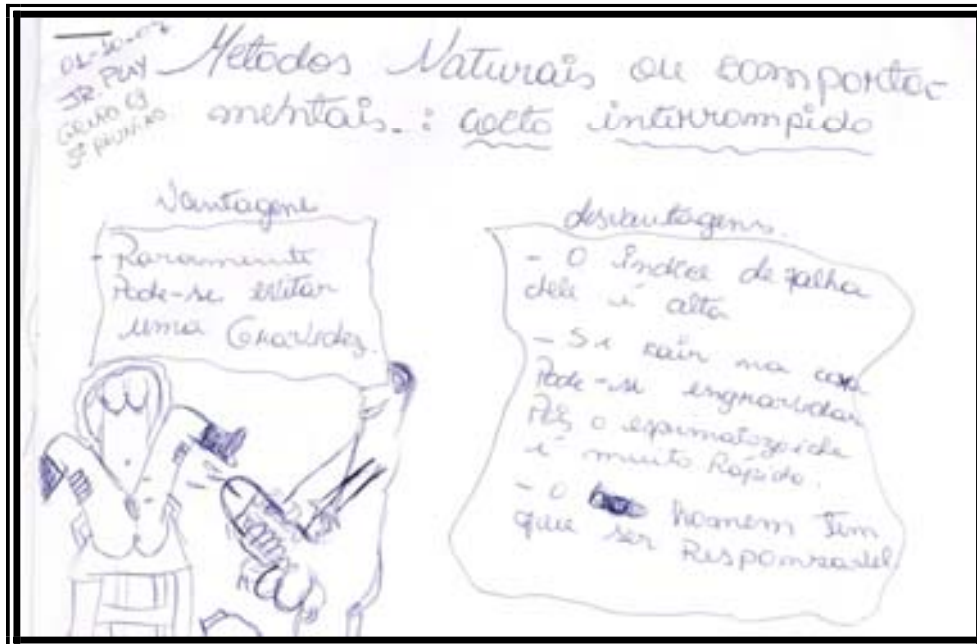 01-10-07
JR. PLAY
GRUPO 03
5ª REUNIÃO
Metodos Naturais ou comporta-
mentais. : coito interrompido
Vantagens
- Raramente
Pode-se evitar
uma Gravidez.
desvantagens.
- O índice de falha
dele é alto
- Se cair na coxa
Pode-se engravidar
Pois o espermatozoide
é muito Rápido.
- O homem tem
que ser Responsavel